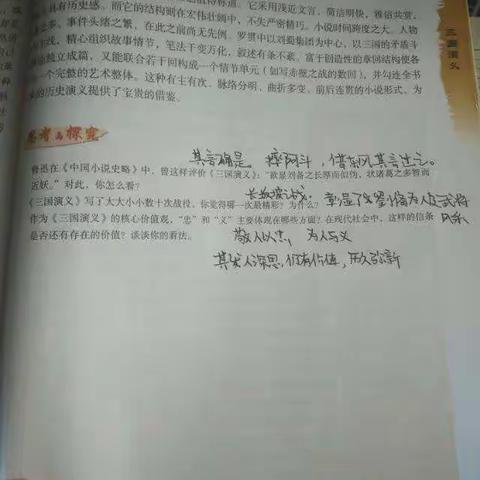 有历史感。而它的结构则在宏伟壮阔中,不失严密精巧。小说时间跨度之大、人物
之多、事件头绪之繁,在此之前尚无先例。罗贯中以刘蜀集团为中心,以三国的矛盾斗
精心组织故事情节,笔法千变万化,叙述有条不紊。富于创造性的章回结构使各
独立成篇,又能联合若干回构成一个情节单元(如写赤壁之战的数回),并勾连全书
一个完整的艺术整体。这种有主有次、脉络分明、曲折多变、前后连贯的小说形式,为
的历史演义提供了宝贵的借鉴。
三国演义
思考与探究
其言确是,摔阿斗,借
鲁迅在《中国小说史略》中,曾这样评价《三国演义》:“欲显刘备之长厚而似伪,状诸葛之多智而
近妖。”对此,你怎么看?
长坂坡
《三国演义》写了大大小小数十次战役,你觉得哪一次最精彩?为什么?
作为《三国演义》的核心价值观,“忠”和“义”主要体现在哪些方面?在现代社会中,这样的信条
是否还有存在的价值?谈谈你的看法。
敬人以忠,为人与义
其发人深思,仍有价值,历久弥新